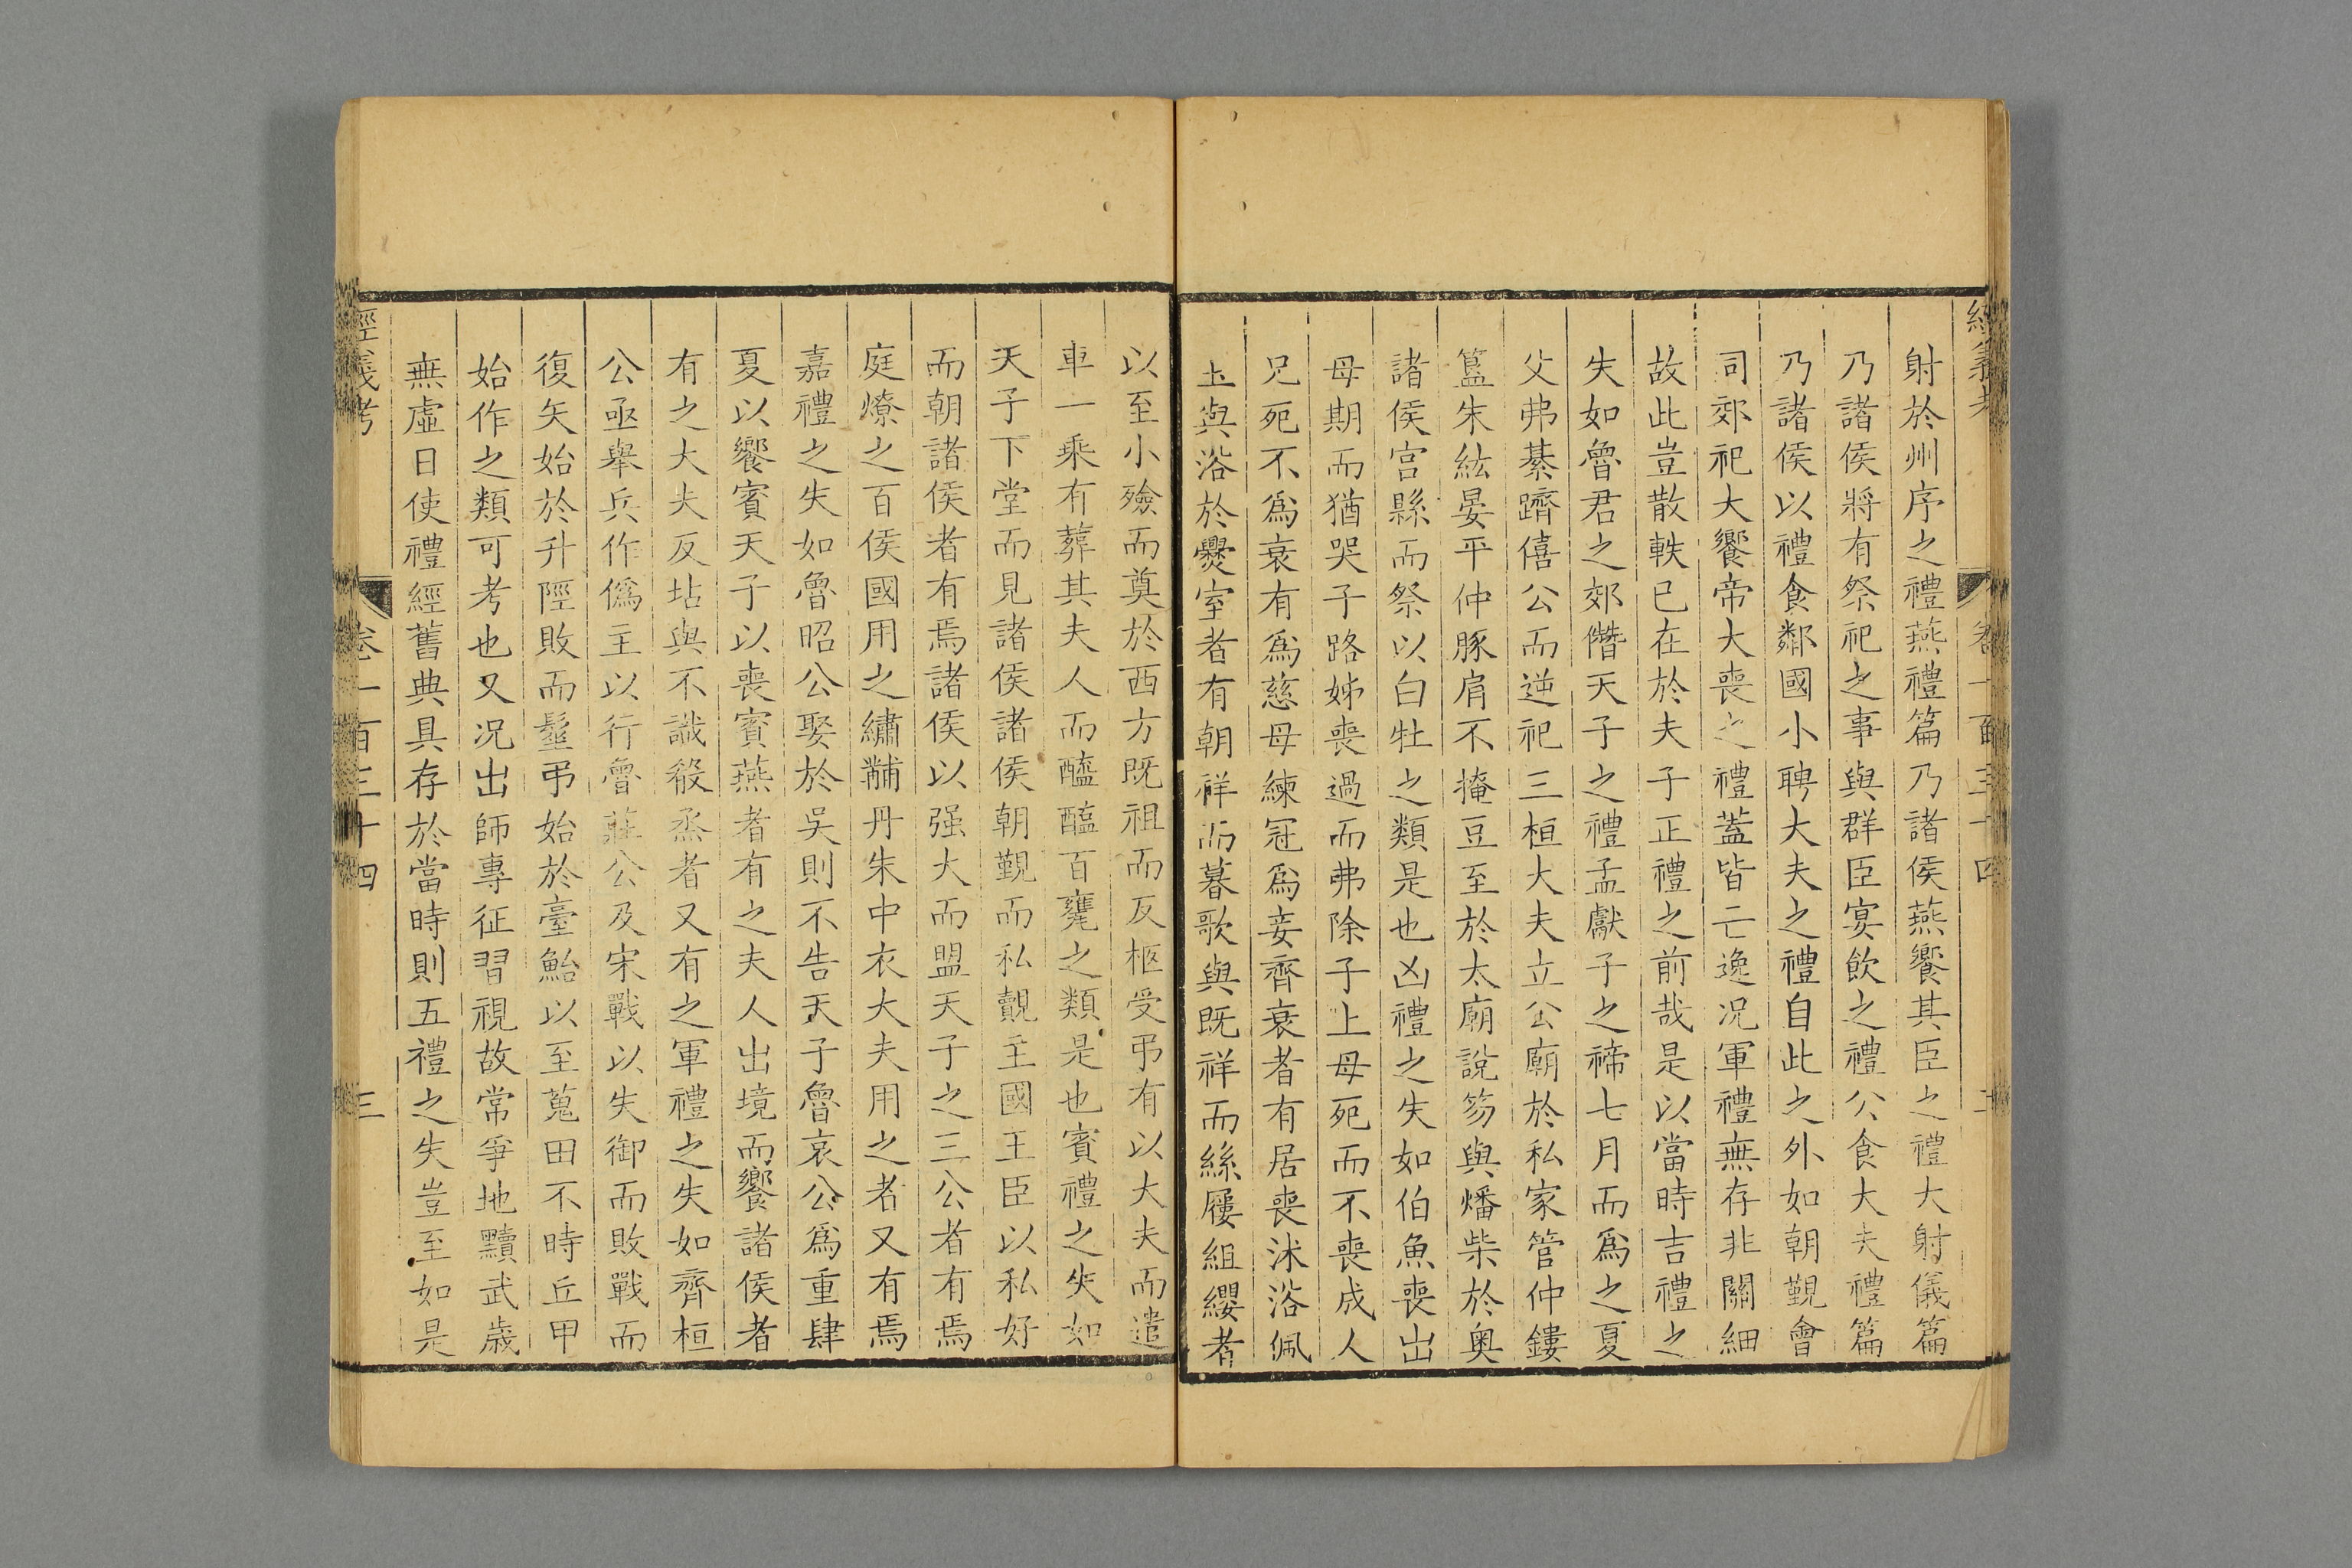 射於州序之禮燕禮篇乃諸侯燕饗其臣之禮大射儀篇
乃諸侯將有祭祀之事與群臣宴飲之禮公食大夫禮篇
乃諸侯以禮食鄰國小聘大夫之禮自此之外如朝覲會
司郊祀大饗帝大喪之禮蓋皆亡逸况軍禮無存非關細
故此豈散軼已在於夫子正禮之前哉是以當時吉禮之
失如魯君之郊僭天子之禮孟獻子之禘七月而爲之夏
父弗綦躋僖公而逆祀三桓大夫立公廟於私家管仲鏤
簋朱紘晏平仲豚肩不掩豆至於太廟說笏與燔柴於奥
諸侯宫縣而祭以白牡之類是也凶禮之失如伯魚喪出
母期而猶哭子路姊喪過而弗除子上母死而不喪成人
兄死不爲衰有爲慈母練冠爲妾齊衰者有居喪沐浴佩
玉與浴於爨室者有朝祥而暮歌與既祥而絲屨組纓者
以至小殮而奠於西方既祖而反柩受弔有以大夫而遣
車一乘有葬其夫人而醯醢百甕之類是也賓禮之失如
天子下堂而見諸侯諸侯朝覲而私覿主國王臣以私好
而朝諸侯者有焉諸侯以强大而盟天子之三公者有焉
庭燎之百侯國用之繡黼丹朱中衣大夫用之者又有焉
嘉禮之失如魯昭公娶於吳則不告天子魯哀公爲重肆
夏以饗賓天子以喪賓燕者有之夫人出境而饗諸侯者
有之大夫反坫與不識殽烝者又有之軍禮之失如齊桓
公亟舉兵作僞主以行魯莊公及宋戰以失御而敗戰而
復矢始於升陘敗而髽弔始於臺鮐以至蒐田不時丘甲
始作之類可考也又况出師專征習視故常爭地黷武歲
無虛日使禮經舊典具存於當時則五禮之失豈至如是
經義考
卷一百三十四
三